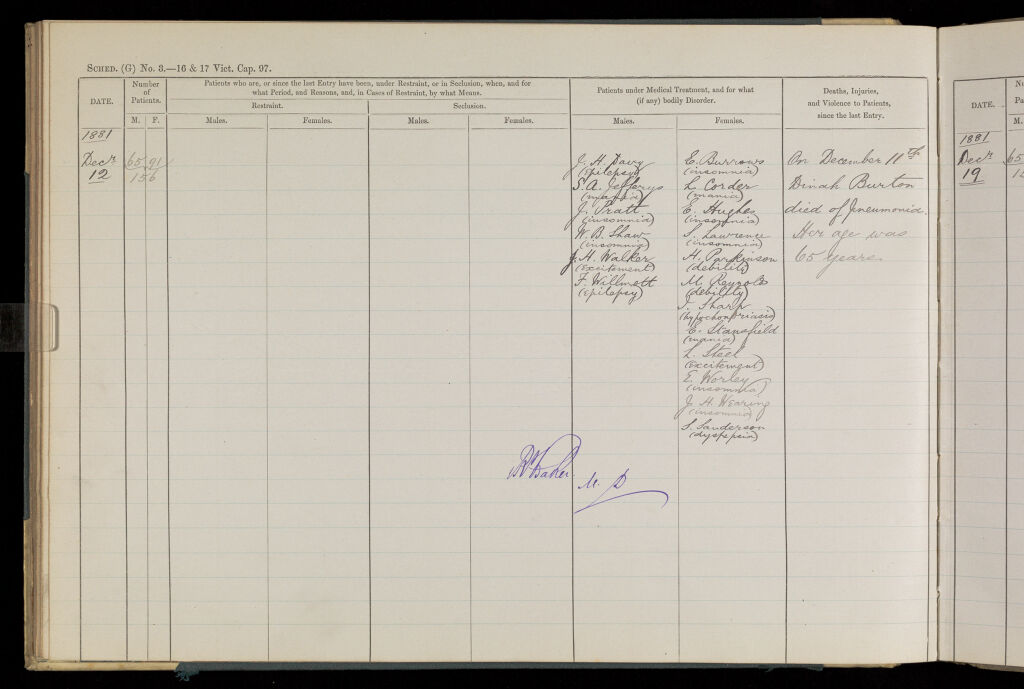 SCHED. (G) No. 3.—16 & 17 Vict. Cap. 97.
DATE.
Number
of
Patients.
M. F.
Patients who are, or since the last Entry have been, under Restraint, or in Seclusion, when, and for
what Period, and Reasons, and, in Cases of Restraint, by what Means.
Restraint.
Seclusion.
Males.
Females.
Males.
Females.
Patients under Medical Treatment, and for what
(if any) bodily Disorder.
Males.
Females.
Deaths, Injuries,
and Violence to Patients,
since the last Entry.
1881
Decr
12
65 91
156
J. H. Davy
(epilepsy)
S. A. Jefferys
(mania)
J. Pratt
(insomnia)
W. B. Shaw
(insomnia)
J. H. Walker
(excitement)
F. Willmott
(epilepsy)
E. Burrows
(insomnia)
L. Corder
(mania)
E. Hughes
(insomnia)
S. Lawrence
(insomnia)
H. Parkinson
(debility)
M. Reynolds
(debility)
T. Sharp
(hypochondriasis)
E. Stansfield
(mania)
L. Steel
(excitement)
E. Worley
(insomnia)
J. H. Wearing
(insomnia)
S. Sanderson
(dyspepsia)
On December 11th
Dinah Burton
died of Pneumonia.
Her age was
65 years.
Baker M.D
DATE.
M.
1881
Decr
19
65